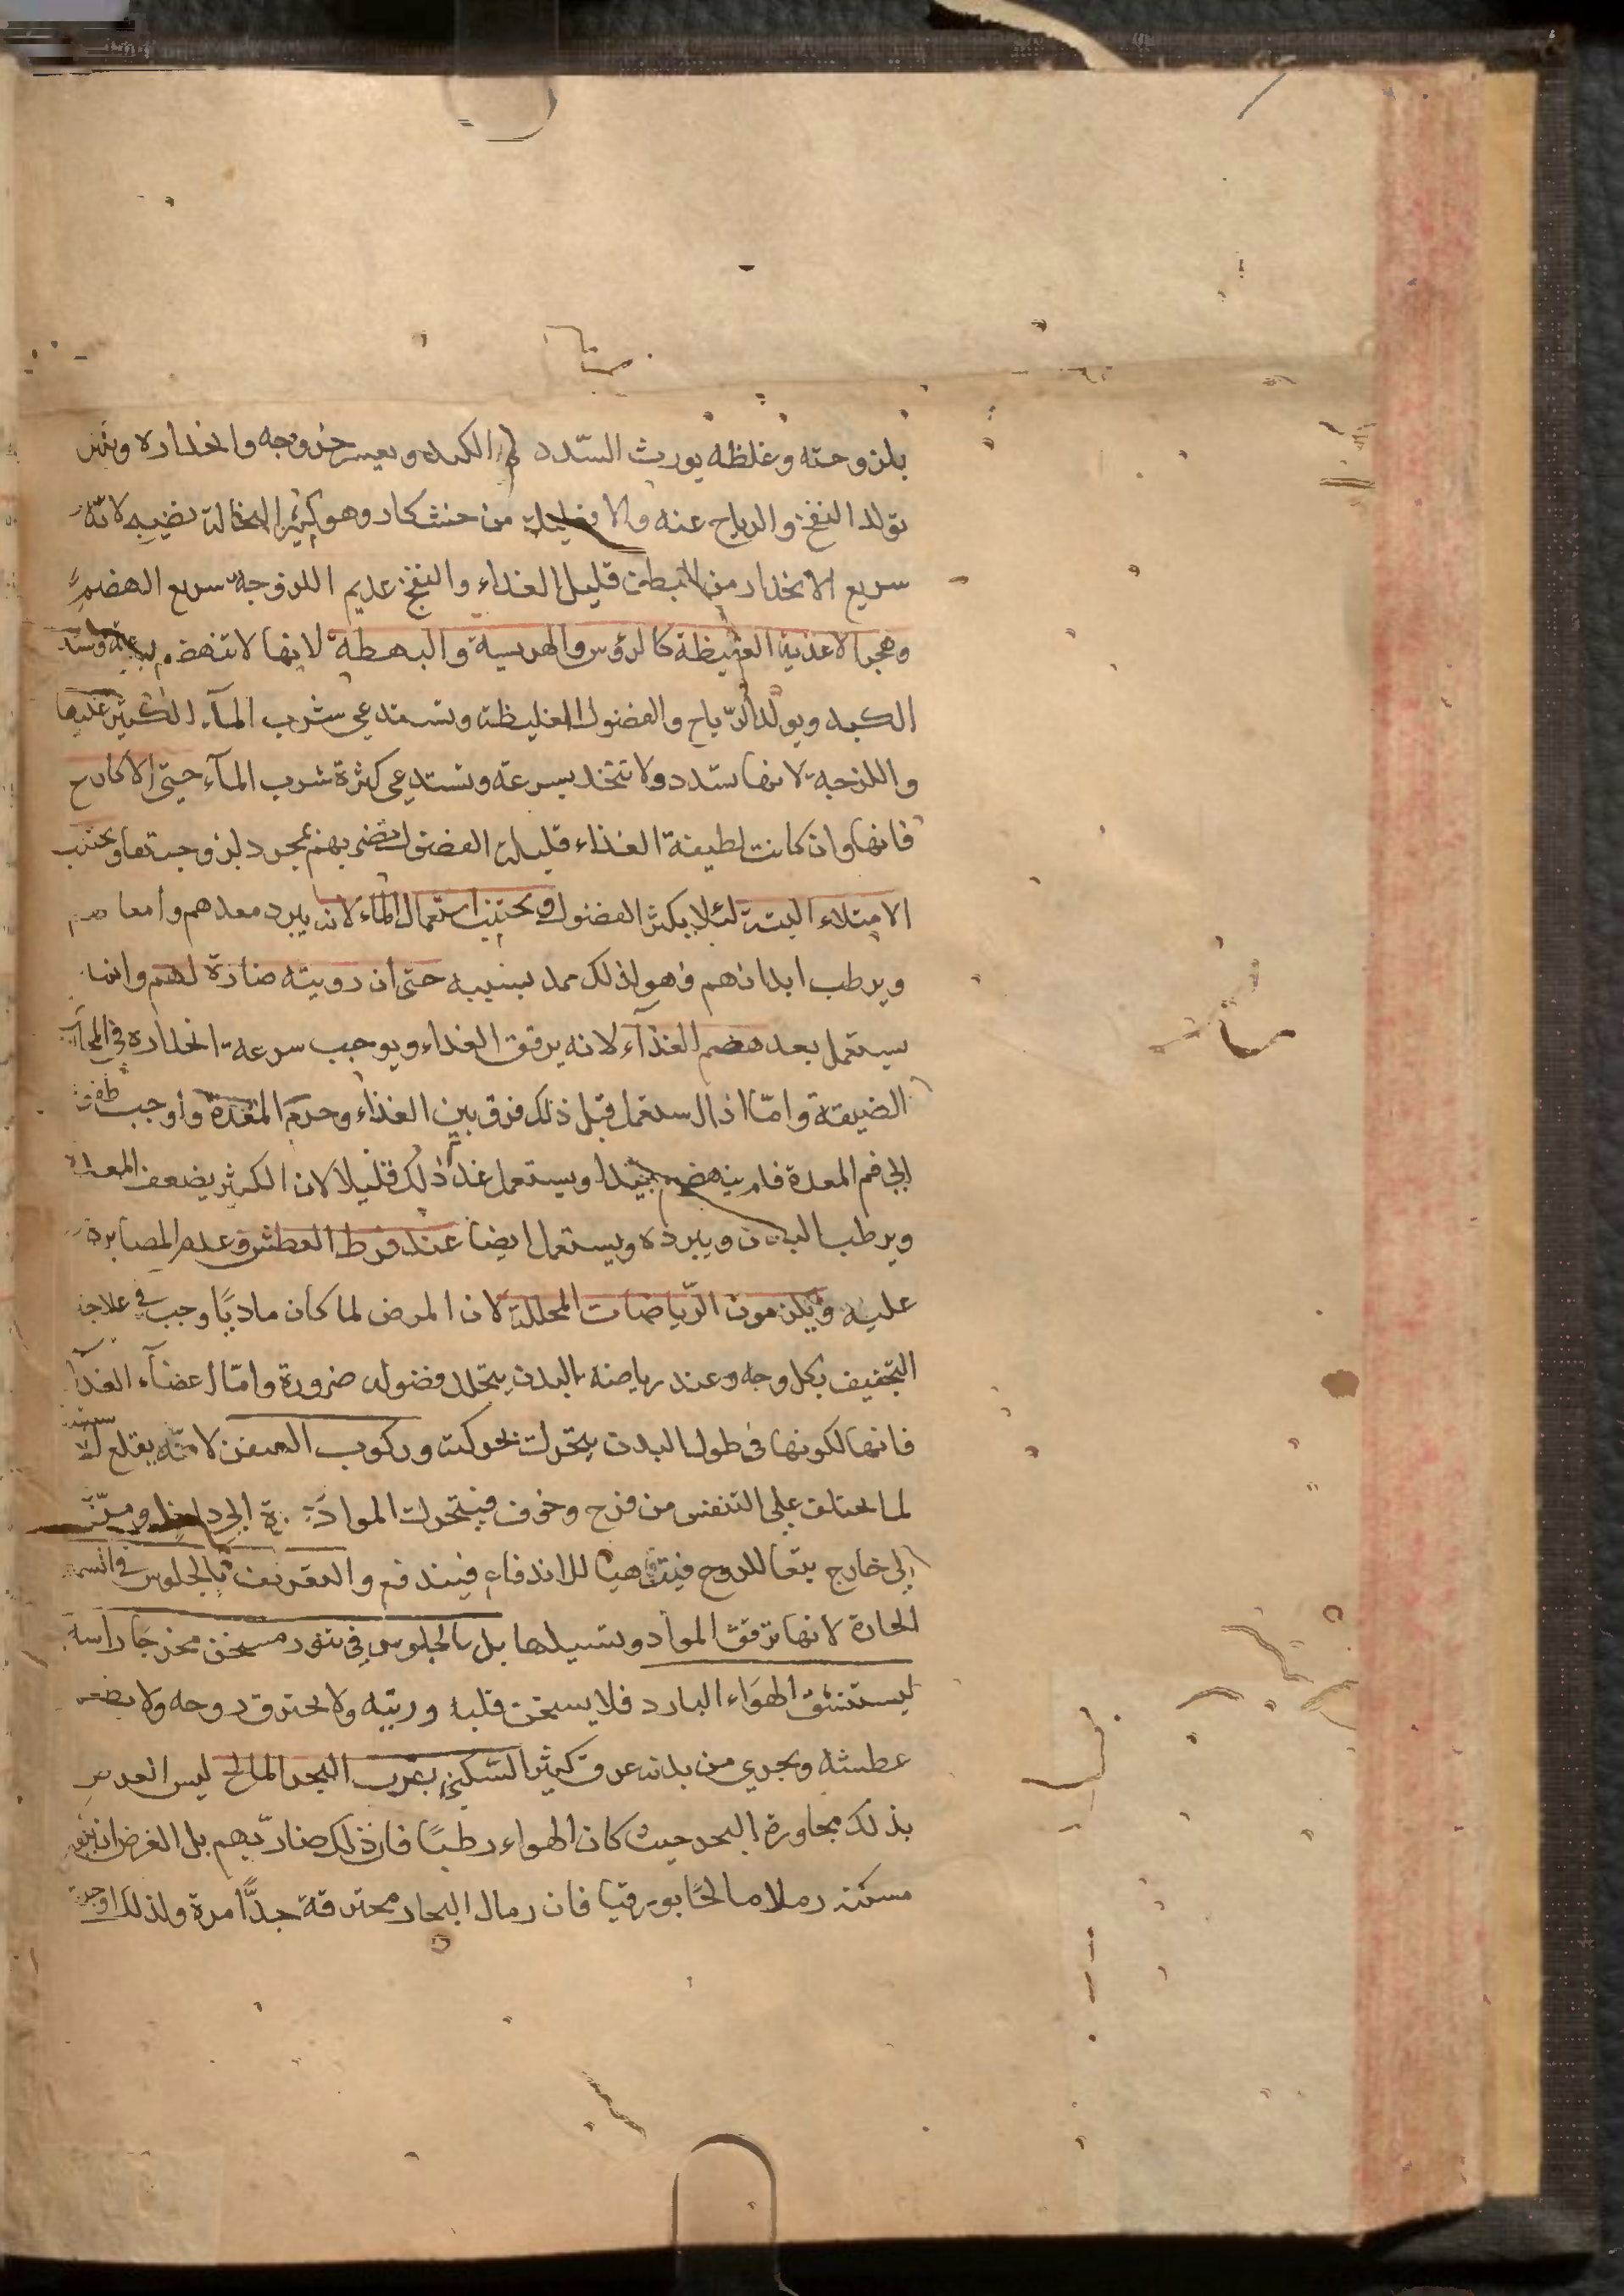 بلزوجته وغلظه يورث السّدد في الكبد ويعسر خروجه وانحداره ويكثر
تولد النفخ والرياح عنه والا فقليلة من خشكار وهو كثير النخالة نضيجه لانّه
سريع الانحدار من البطن قليل الغذاء والنفخ عديم اللزوجة سريع الهضم
وهجر الاغذية الغليظة كالرؤس والهريسة والبهطة لانها لا تنهضم بسرعة وتسدد
الكبد ويولد الرّياح والفضول الغليظة وتستدعي شرب المآء الكثير عليها
واللزجة لانها تسدد ولا تنحدر بسرعة وتستدعي كثرة شرب المآء حتى الاكارع
فانها وان كانت لطيفة الغذاء قليلة الفضول تضر بهم بمجرد لزوجتها ويجتنب
الامتلاء البتة لئلا يكثر الفضول ويجتنب استعمال الماء لانه يبرد معدهم وأمعاهم
ويرطب ابدانهم فهو لذلك ممد لسببه حتى أن رويته ضارة لهم وانما
يستعمل بعد هضم الغذآء لانه يرقق الغذاء ويوجب سرعة انحداره في المجاري
الضيقة وامّا اذا استعمل قبل ذلك فرق بين الغذاء وجرم المعدة وأوجب طفوه
إلى فم المعدة فلم ينهضم جيدا ويستعمل عند ذلك قليلا لان الكثير يضعف المعدة
ويرطب البدن ويبرده ويستعمل ايضا عند فرط العطش وعدم المصابرة
عليه ويلزمون الرّياضات المحللة لان المرض لما كان ماديًا وجب في علاجه
التجفيف بكل وجه وعند رياضة البدن يتحلل فضوله ضرورة وامّا اعضآء الغذآء
فانها لكونها في طول البدن يتحرك بحركته وركوب السفن لانّه يقلع
لما يختلف على التنفس من فرح وخوف فيتحرك المواد تارة إلى داخل ومرّة
إلى خارج تبعًا للروح فيتهيا للاندفاع فيندفع والتعريق بالجلوس في الشمس
الحارة لانها ترقق المواد وتسيلها بل بالجلوس في تنور مسخن مخرجًا راسه
ليستنشق الهواء البارد فلا يسخن قلبه وريته ولا يحترق روحه ولا يصعب
عطشه ويجري من بدنه عرق كثير التسكين بقرب البحر المالح ليس الغرض
بذلك مجاورة البحر حيث كان الهواء رطبًا فان ذلك ضارّ بهم بل الغرض ان يكون
مسكنه رملا مالحًا بورقيا فان رمال البحار محترقة جدًّا مرة ولذلك